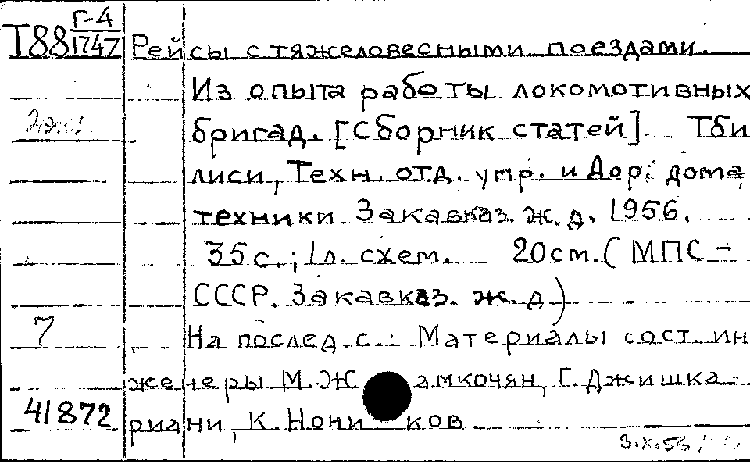 Г-4
Т88 1747 Рейсы с тяжеловесными поездами.
Из опыта работы локомотивных
бригад. [Сборник статей]. Тби
лиси, Техн. отд. упр. и Дор. дома
техники Закавказ. ж. д. 1956.
35 с.; 1 л. схем. 20 см. (МПС -
СССР. Закавказ. ж. д)
7 На послед. с.: Материалы сост. ин
женеры М. Ж амкочян, Г. Джишка
41872 риани, К. Нони ков
3.X.56